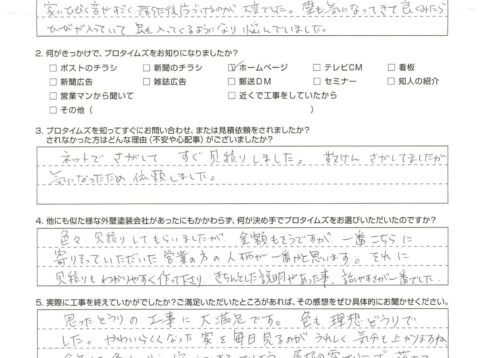 家にひびく音やすごく
壁も気になってきて良くみたら
ひびが入っていて 虫も入ってくるようになり悩んでいました。
2. 何がきっかけで、プロタイムズをお知りになりましたか?
□ ポストのチラシ □ 新聞のチラシ ☑ ホームページ □ テレビCM □ 看板
□ 新聞広告 □ 雑誌広告 □ 郵送DM □ セミナー □ 知人の紹介
□ 営業マンから聞いて □ 近くで工事をしていたから
□ その他 (
3. プロタイムズを知ってすぐにお問い合わせ、または見積依頼をされましたか?
されなかった方はどんな理由(不安や心配事)がございましたか?
ネットで さがして すぐ見積りしました。 数けん さがしてましたが
気になったため 依頼しました。
4. 他にも似た様な外壁塗装会社があったにもかかわらず、何が決め手でプロタイムズをお選びいただいたのですか?
色々 見積りしてもらいましたが 金額もそうですが、一番こちらに
寄りそっていただいた営業の方の人柄が一番かと思います。それに
見積りもわかりやすく作って下さり、きちんとした説明があった事、話しやすさが一番でした。
5. 実際に工事を終えていかがでしたか?ご満足いただいたところがあれば、その感想をぜひ具体的にお聞かせください。
思ったとうりの工事に大満足です。 色も理想どうりで
した。かわいらくなった家を毎日見るのがうれしく気分も上がりますね